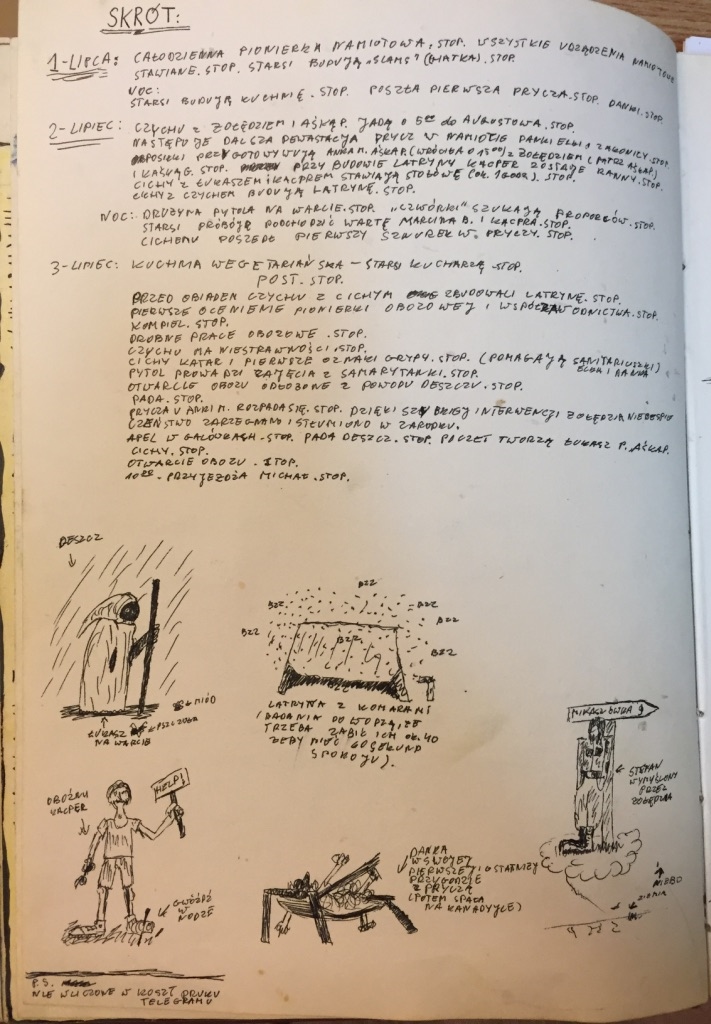 SKRÓT:
1-LIPCA: CAŁODZIENNA PIONIERKA NAMIOTOWA. STOP. WSZYSTKIE URZĄDZENIA NAMIOTOWE
STAWIANE. STOP. STARSI BUDUJĄ „SLAMS" (MATKA). STOP.
NOC:
STARSI BUDUJĄ KUCHNIĘ. STOP. POSZŁA PIERWSZA PRYCZA. STOP. DANKI. STOP.
2-LIPIEC: CZYCHU Z ŻOŁĘDZIEM I AŚKĄ P. JADĄ O 5:00 do AUGUSTOWA. STOP.
NASTĘPUJE DALSZA DEWASTACJA PRYCZ W NAMIOCIE DANKI ELKI I ZAKONICY. STOP.
POSIŁKI PRZYGOTOWYWUJĄ ANKA M. AŚKA P. (WRÓCIŁA O 15:00) Z ŻOŁĘDZIEM (PATRZ AŚKA P.)
I KAŚKĄ G. STOP. PRZY BUDOWIE LATRYNY KACPER ZOSTAJE RANNY. STOP.
CICHY Z ŁUKASZEM I KACPREM STAWIAJĄ STOŁÓWĘ (OK. 16:00). STOP.
CICHY Z CZYCHEM BUDUJĄ LATRYNĘ. STOP.
NOC: DRUŻYNA PYTOLA NA WARCIE. STOP. „CZWÓRKI" SZUKAJĄ PROPORCÓW. STOP.
STARSI PRÓBUJĘ PODCHODZIĆ WARTĘ MARCINA B. I KACPRA. STOP.
CICHEMU POSZEDŁ PIERWSZY SZNUREK W PRYCZY. STOP.
3-LIPIEC: KUCHNIA WEGETARIAŃSKA – STARSI KUCHARZĄ. STOP.
POST. STOP.
PRZED OBIADEM CZYCHU Z CICHYM ZBUDOWALI LATRYNĘ. STOP.
PIERWSZE OCENIENIE PIONIERKI OBOZOWEJ I WSPÓŁZAWODNICTWA. STOP.
KOMPIEL. STOP.
DROBNE PRACE OBOZOWE. STOP.
CZYCHU MA NIESTRAWNOŚCI. STOP.
CICHY KATAR I PIERWSZE OZNAKI GRYPY. STOP. (POMAGAJĄ SANITARIUSZKI
PYTOL PROWADZI ZAJĘCIA Z SAMARYTANKI. STOP.
OTWARCIE OBOZU ODŁOŻONE Z POWODU DESZCZU. STOP.
PADA. STOP.
PRYCZA U ANKI M. ROZPADA SIĘ. STOP. DZIĘKI SZYBKIEJ INTERWENCJI ŻOŁĘDZIA NIEBESPIE
CZEŃSTWO ZARZEGNANO I STŁUMIONO W ZARODKU.
APEL W GALÓWKACH. STOP. PADA DESZCZ. STOP. POCZET TWORZĄ ŁUKASZ P. AŚKA P.
CICHY. STOP.
OTWARCIE OBOZU. STOP.
PRZYJEŻDŻA MICHAŁ. STOP.
DESZCZ
MIÓD
PSZCZOŁA
ŁUKASZ
NA WARCIE
BZZ
BZZ
BZZ
BZZ
BZZ
BZZ
BZZ
BZZ
LATRYNA Z KOMARAMI
(BADANIA DOWODZĄ, ŻE
TRZEBA ZABIĆ ICH OK. 40
ŻEBY MIEĆ 60 SEKUND
SPOKOJU).
MIKASZÓWKA 9
STEFAN
WYMYŚLONY
PRZEZ
ŻOŁĘDZIA
NIEBO
ZIEMIA
OBOŹNY
KACPER
HELP!
GWÓŹDŹ
W
NODZE
DANKA
W SWOJEJ
PIERWSZEJ I OSTATNIEJ
PRZYGODZIE
Z PRYCZĄ
(POTEM SPAŁA
NA KANADYJCE)
P.S.
NIE WLICZONE W KOSZT DRUKU
TELEGRAMU